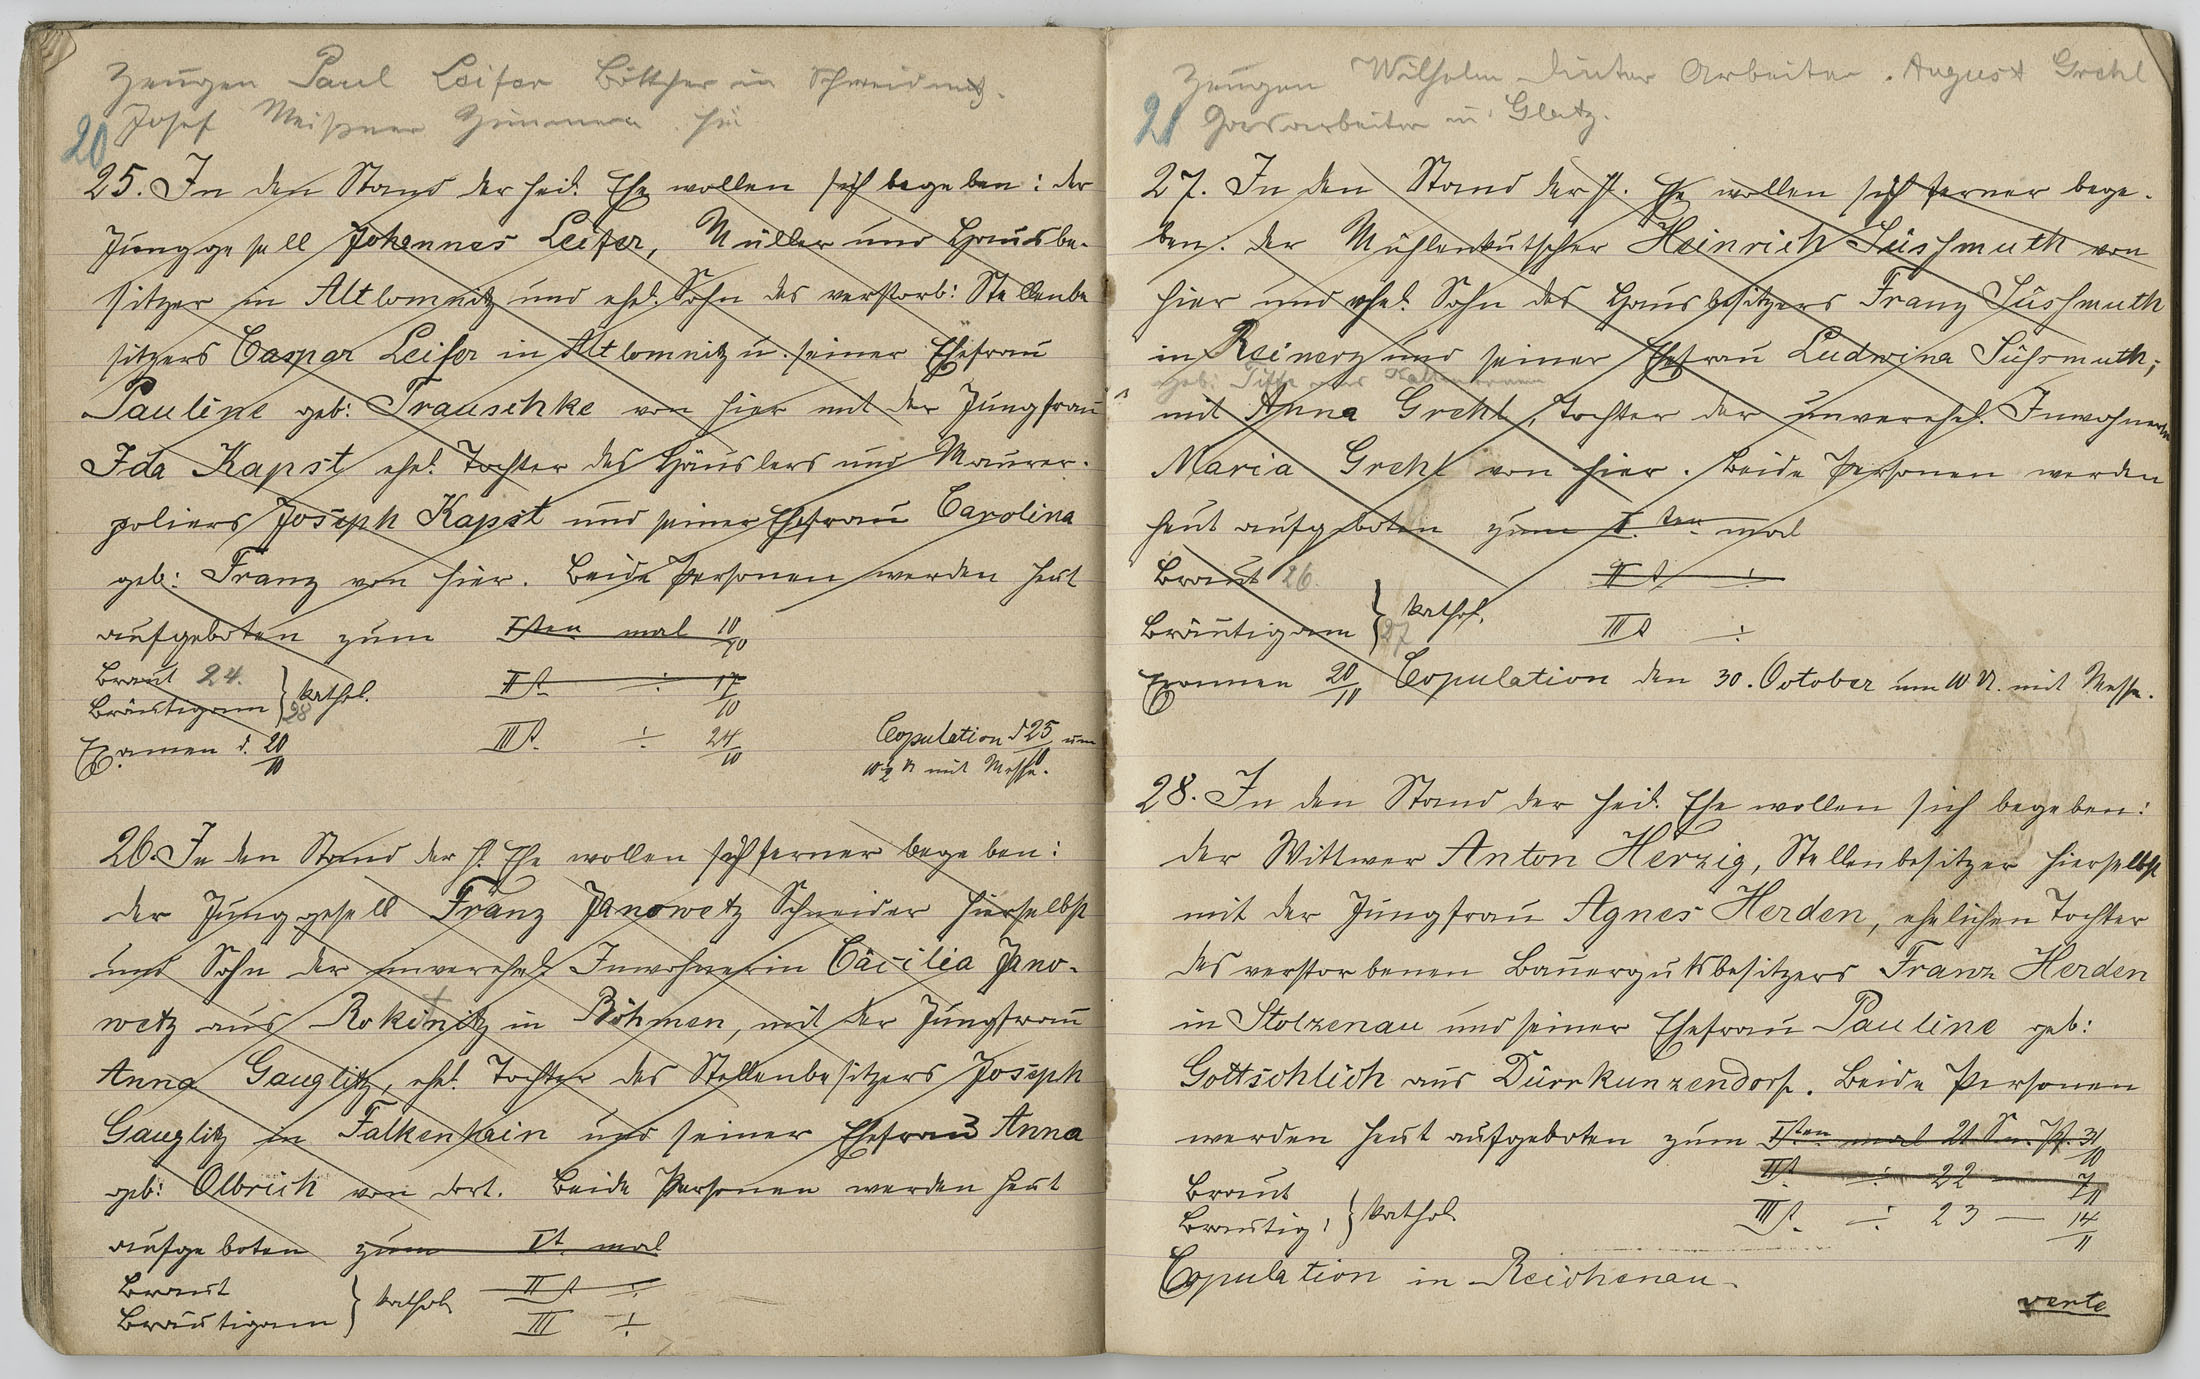 Zeugen Paul Leifer Böttcher in Schweidnitz.
Josef Meißner Zimmerm. hier
20
25. In den Stand der heil. Ehe wollen sich begeben: der
Junggesell Johannes Leifer, Müller und Hausbe-
sitzer in Altlomnitz und ehel. Sohn des verstorb: Stellenbe
sitzers Caspar Leifer in Altlomnitz u. seiner Ehefrau
Pauline geb: Trauschke von hier mit der Jungfrau
Ida Kapst ehel. Tochter des Häuslers und Maurer-
poliers Joseph Kapst und seiner Ehefrau Carolina
geb: Franz von hier. Beide Personen werden heut
aufgeboten zum Isten mal 10/10
Braut 24. IIt ÷ 17/10
Bräutigam 28 } kathol.
Examen d. 20/10 IIIt. ÷ 24/10 Copulation d 25/10 um
10½ U mit Messe.
26. In den Stand der h. Ehe wollen sich ferner begeben:
der Junggesell Franz Janowetz Schneider hierselbst
und Sohn der unverehel. Inwohnerin Cäcilia Jano-
wetz aus Rokitnitz in Böhmen, mit der Jungfrau
Anna Gauglitz, ehel. Tochter des Stellenbesitzers Joseph
Gauglitz in Falkenhain und seiner Ehefrau Anna
geb: Olbrich von dort. Beide Personen werden heut
aufgeboten zum It. mal
Braut IIt ÷
Bräutigam } kathol. III ÷
Zeugen Wilhelm Arbeiter. August Grehl
Gasarbeiter in Glatz.
21
27. In den Stand der h. Ehe wollen sich ferner bege-
ben: der Mühlenkutscher Heinrich Süssmuth von
hier und ehel. Sohn des Hausbesitzers Franz Süssmuth
in Reinerz und seiner Ehefrau Ludwina Süssmuth;
geb: aus
mit Anna Grehl, Tochter der unverehel. Inwohnerin
Maria Grehl von hier. Beide Personen werden
heut aufgeboten zum I. ten mal
Braut 26. IIt ÷
Bräutigam 27 } kathol. IIIt ÷
Examen 20/11 Copulation den 30. October um 10 U. mit Messe.
28. In den Stand der heil. Ehe wollen sich begeben:
der Wittwer Anton Herzig, Stellenbesitzer hierselbst
mit der Jungfrau Agnes Herden, ehelichen Tochter
des verstorbenen Bauergutsbesitzers Franz Herden
in Stolzenau und seiner Ehefrau Pauline geb:
Gottschlich aus Dürrkunzendorf. Beide Personen
werden heut aufgeboten zum Isten mal 21 Sn. Pf. 31/10
Braut IIt. ÷ 22 — 7/11
Bräutig. } kathol. IIIt. ÷ 23 — 14/11
Copulation in Reichenau.
verte